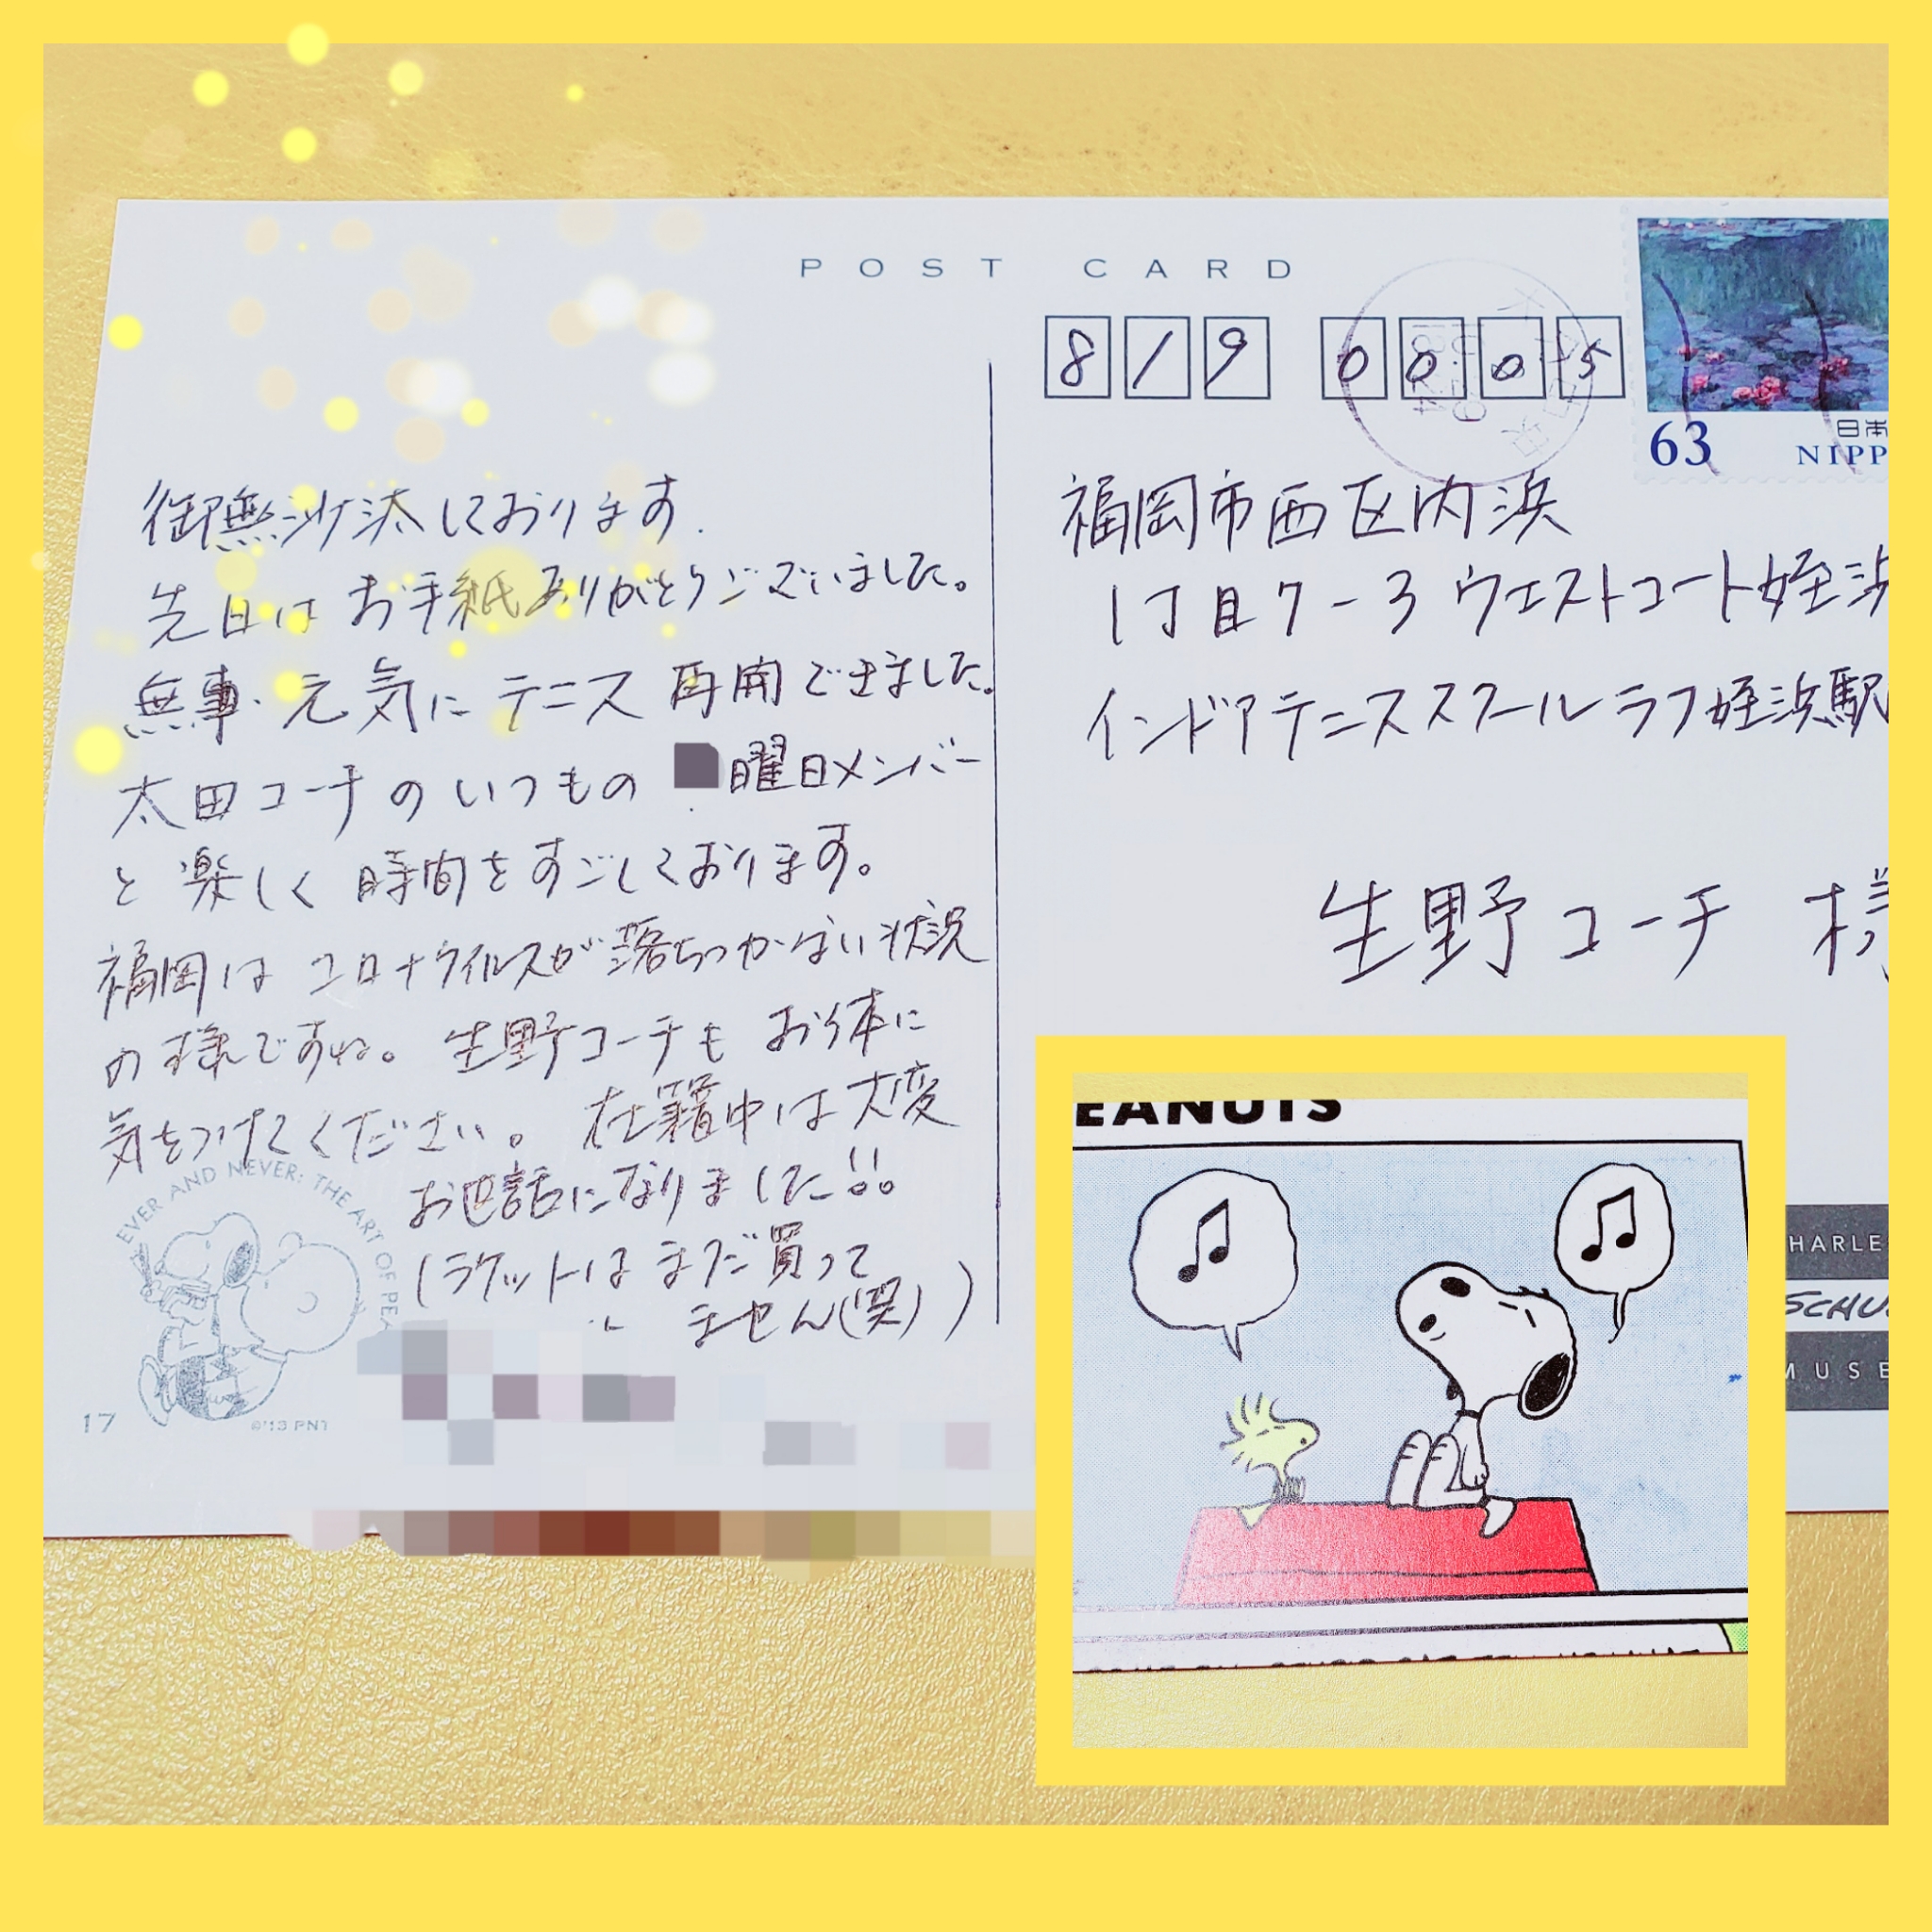 POST CARD
819 0005
63
日本
NIPP
御無沙汰しております.
先日はお手紙ありがとうございました。
無事・元気にテニス再開できました。
太田コーチのいつもの 曜日メンバー
と楽しく時間をすごしております。
福岡はコロナウイルスが落ちつかない状況
の様ですね。生野コーチもお体に
気をつけてください。在籍中は大変
お世話になりました!!
(ラケットはまだ買って
ません(笑))
EVER AND NEVER: THE ART OF PEA
17
©'13 PNT
福岡市西区内浜
1丁目7-3 ウエストコート姪浜
インドアテニススクール ラフ姪浜駅
生野コーチ 様
EANUTS
HARLE
SCHU
MUSE